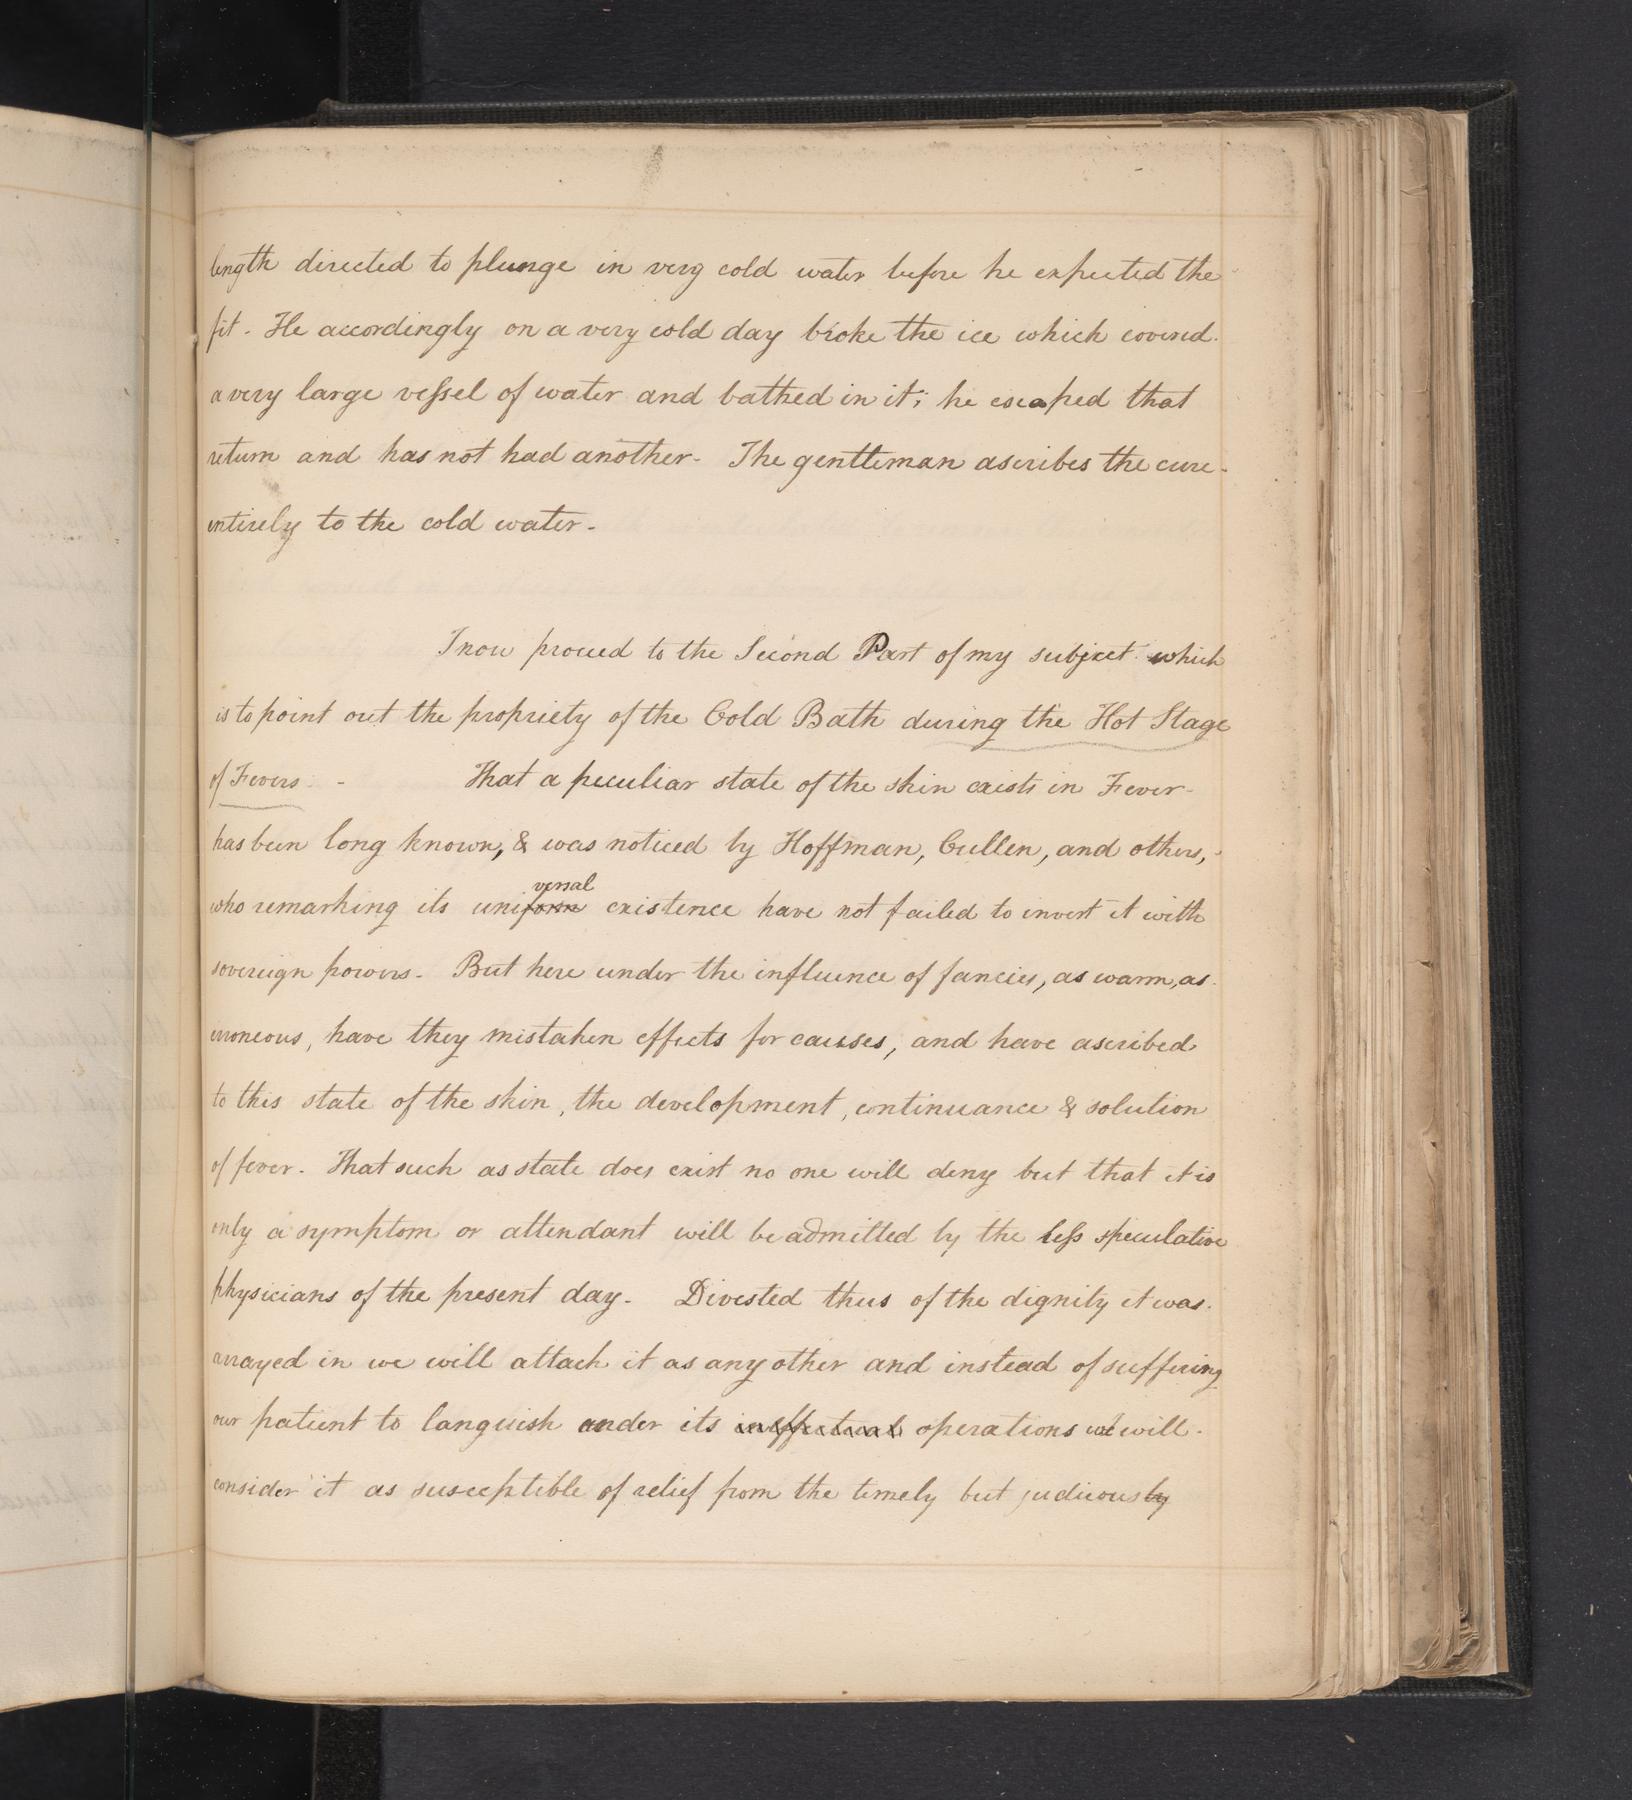 length directed to plunge in very cold water before he expected the
fit. He accordingly on a very cold day broke the ice which covered
a very large vessel of water and bathed in it; he escaped that
return and has not had another. The gentleman ascribes the cure
entirely to the cold water.
I now proceed to the Second Part of my subject which
is to point out the propriety of the Cold Bath during the Hot Stage
of Fevers. - That a peculiar state of the skin exists in Fever
has been long known, & was noticed by Hoffman, Cullen, and others,
versal
who remarking its uniform existence have not failed to invest it with
sovereign powers. But here under the influence of fancies, as warm, as
erroneous, have they mistaken effects for causes, and have ascribed
to this state of the skin, the development, continuance & solution
of fever. That such as state does exist no one will deny but that it is
only a symptom or attendant will be admitted by the less speculative
physicians of the present day. Divested thus of the dignity it was
arrayed in we will attack it as any other and instead of suffering
our patient to languish under its ineffectual operations we will
consider it as susceptible of relief from the timely but judiciously